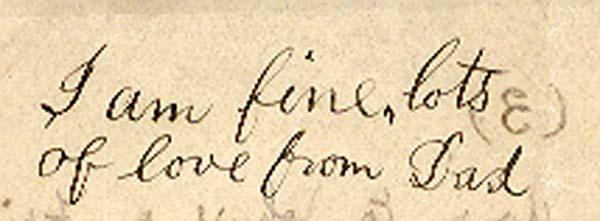 I am fine, lots
of love from Dad